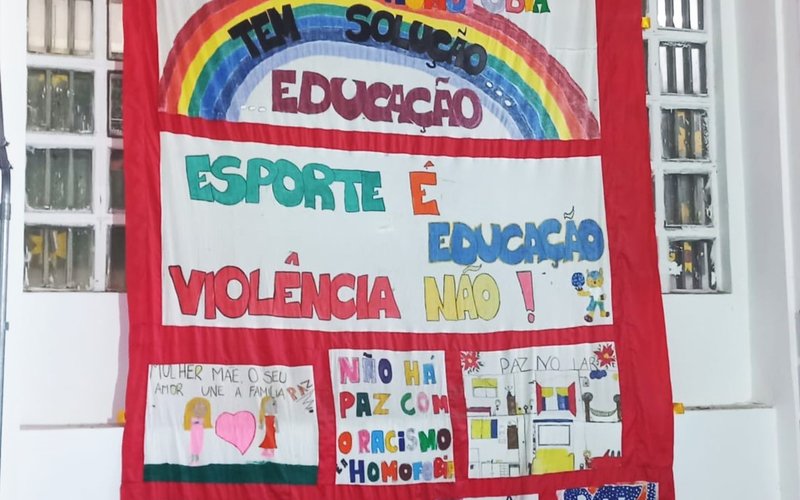 TEM SOLUÇÃO
EDUCAÇÃO
ESPORTE É
EDUCAÇÃO
VIOLÊNCIA NÃO !
MULHER MÃE, O SEU
AMOR UNE A FAMÍLIA
PAZ
NÃO HÁ
PAZ COM
O RACISMO
HOMOFOBIA
PAZ NO LAR